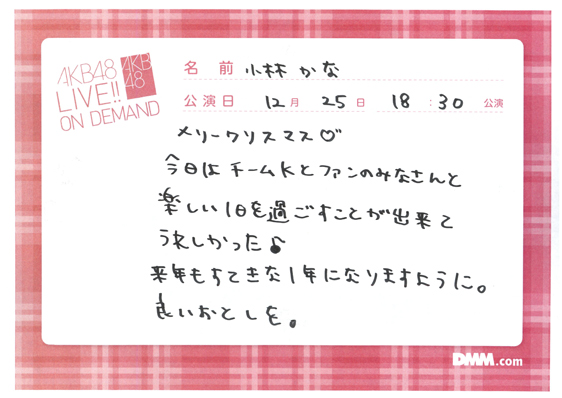 AKB48
LIVE!!
ON DEMAND
AKB
48
名前 小林かな
公演日 12月 25日 18:30 公演
メリークリスマス♡
今日はチームKとファンのみなさんと
楽しい1日を過ごすことが出来て
うれしかった♪
来年もすてきな1年になりますように。
良いおとしを。
DMM.com